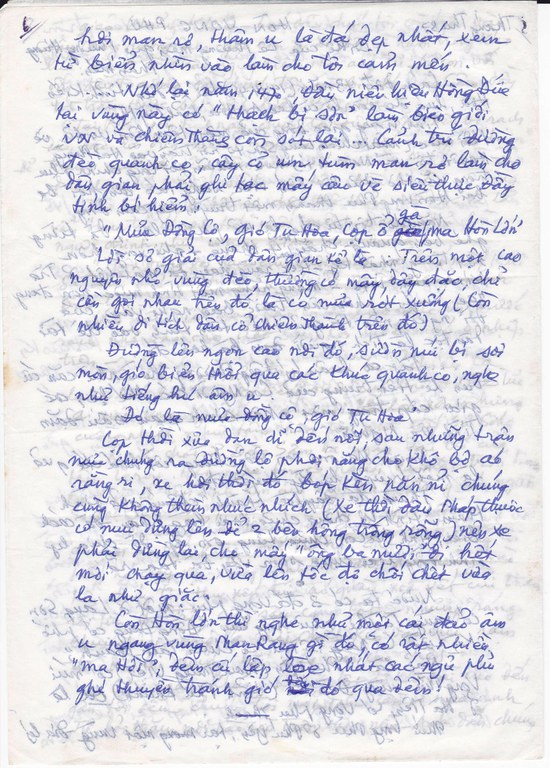 hơi man rợ, thâm u là đá đẹp nhất, xem
từ biển nhìn vào làm cho tôi cảm mến.
Nhớ lại năm 1470, đầu niên hiệu Hồng Đức
tại vùng này có "Thạch bi sơn" làm biên giới
VN và chiêm Thành còn sót lại... Cảnh trí đường
đèo quanh co, cây cỏ um tùm man rợ làm cho
dân gian phải ghi tạc mấy câu về siêu thực đầy
tính bí hiểm:
"Mưa Đồng Cọ, gió Tu Hoa, Cọp Ổ gà, ma Hòn Lớn"
Lời sơ giải của dân gian kể là: Trên một cao
nguyên nhỏ vùng đèo, thường có mây dầy đặc, chỉ
cần gọi nhau trên đó là có mưa rớt xuống (Còn
nhiều di tích dân cổ chiêm Thành trên đó)
Đường lên ngọn cao nơi đó, sườn núi bị soi
mòn, gió biển thổi qua các khúc quanh co, nghe
như tiếng hú âm u.
Đó là mưa đồng cỏ, gió Tu Hoa"
Cọp thời xưa dan dĩ đến nỗi sau những trận
mưa chúng ra đường lộ phơi nắng cho khô bộ áo
rằng ri, xe hơi thời đó bóp kèn năn nỉ chúng
cũng không thèm nhúc nhích. (Xe thời đầu Pháp thuộc
có mui dựng lên để 2 bên hông trống rỗng) nên xe
phải dừng lại, chờ mấy "ông ba mươi" đi hết
mới chạy qua, vừa lên tốc độ chối chết vừa
la như giặc.
Còn Hòn lớn thì nghe như một cái đảo âm
u ngang vùng Phan Rang gì đó, có rất nhiều
"ma Hời", đêm cứ lập loe nhát các ngư phủ
ghe thuyền tránh gió ở đó qua đêm!